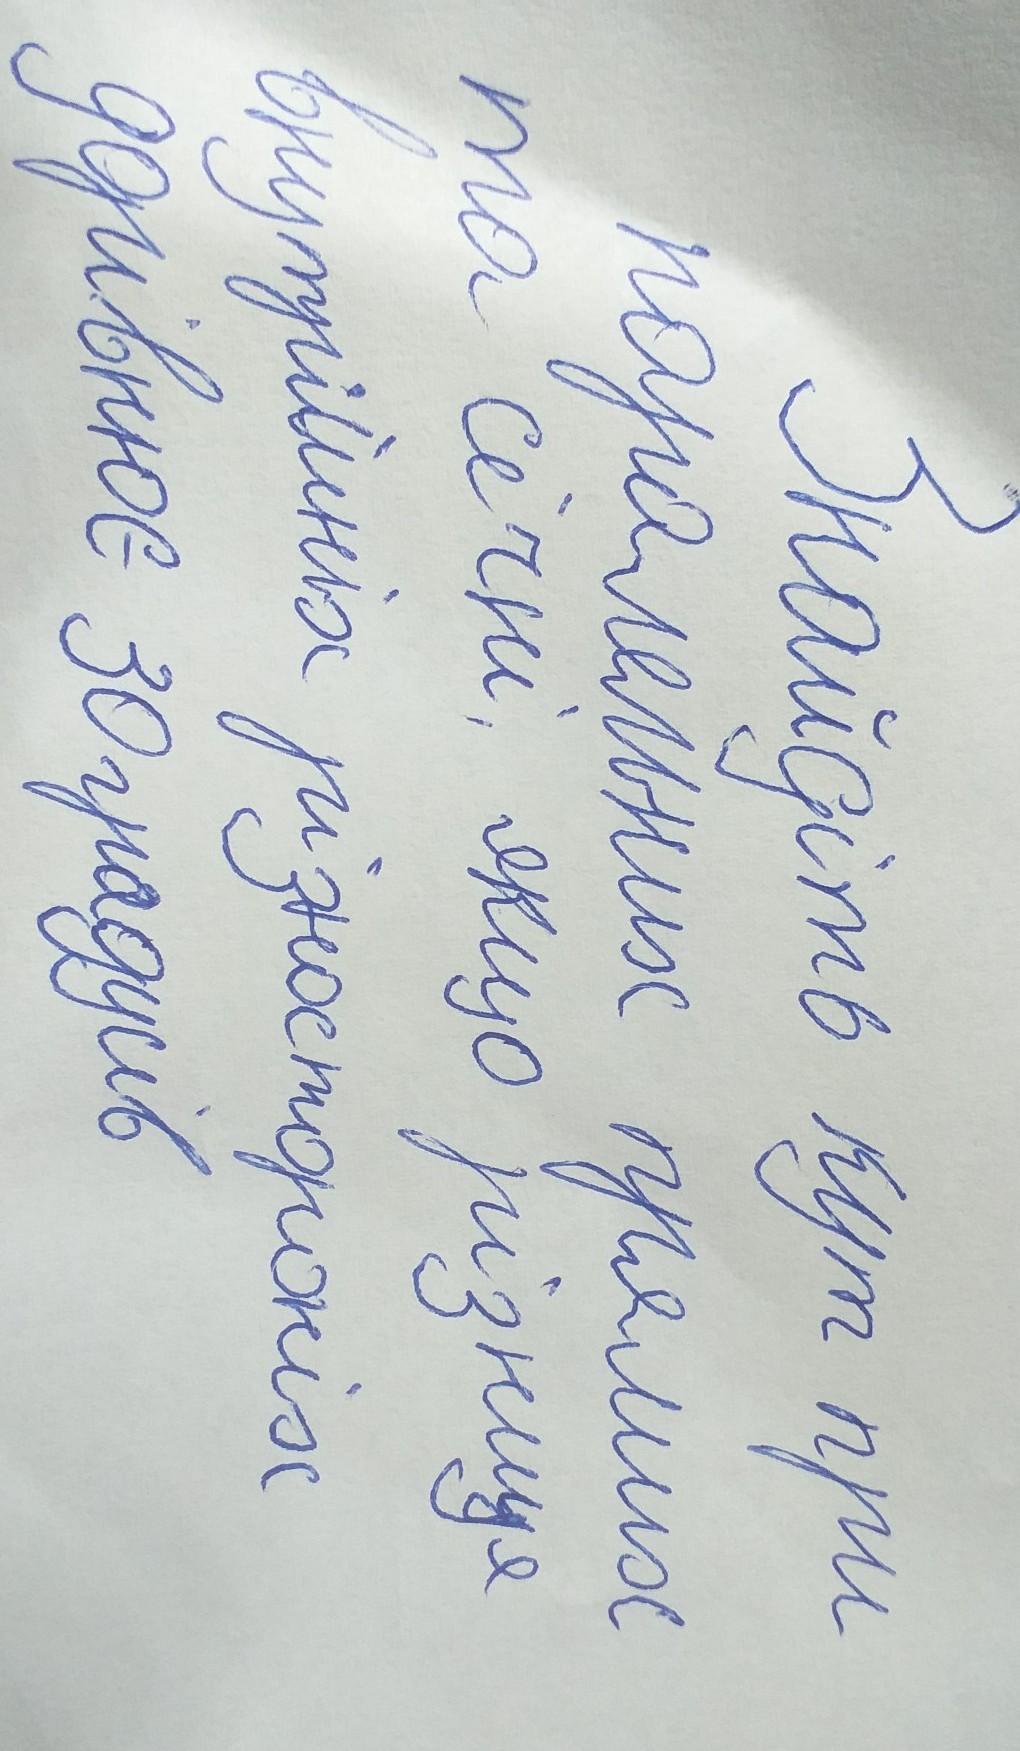 Знайдіть кут при
паралельних прямих
та січні, якщо різниця
внутрішніх різносторонніх
дорівнює 30градусів